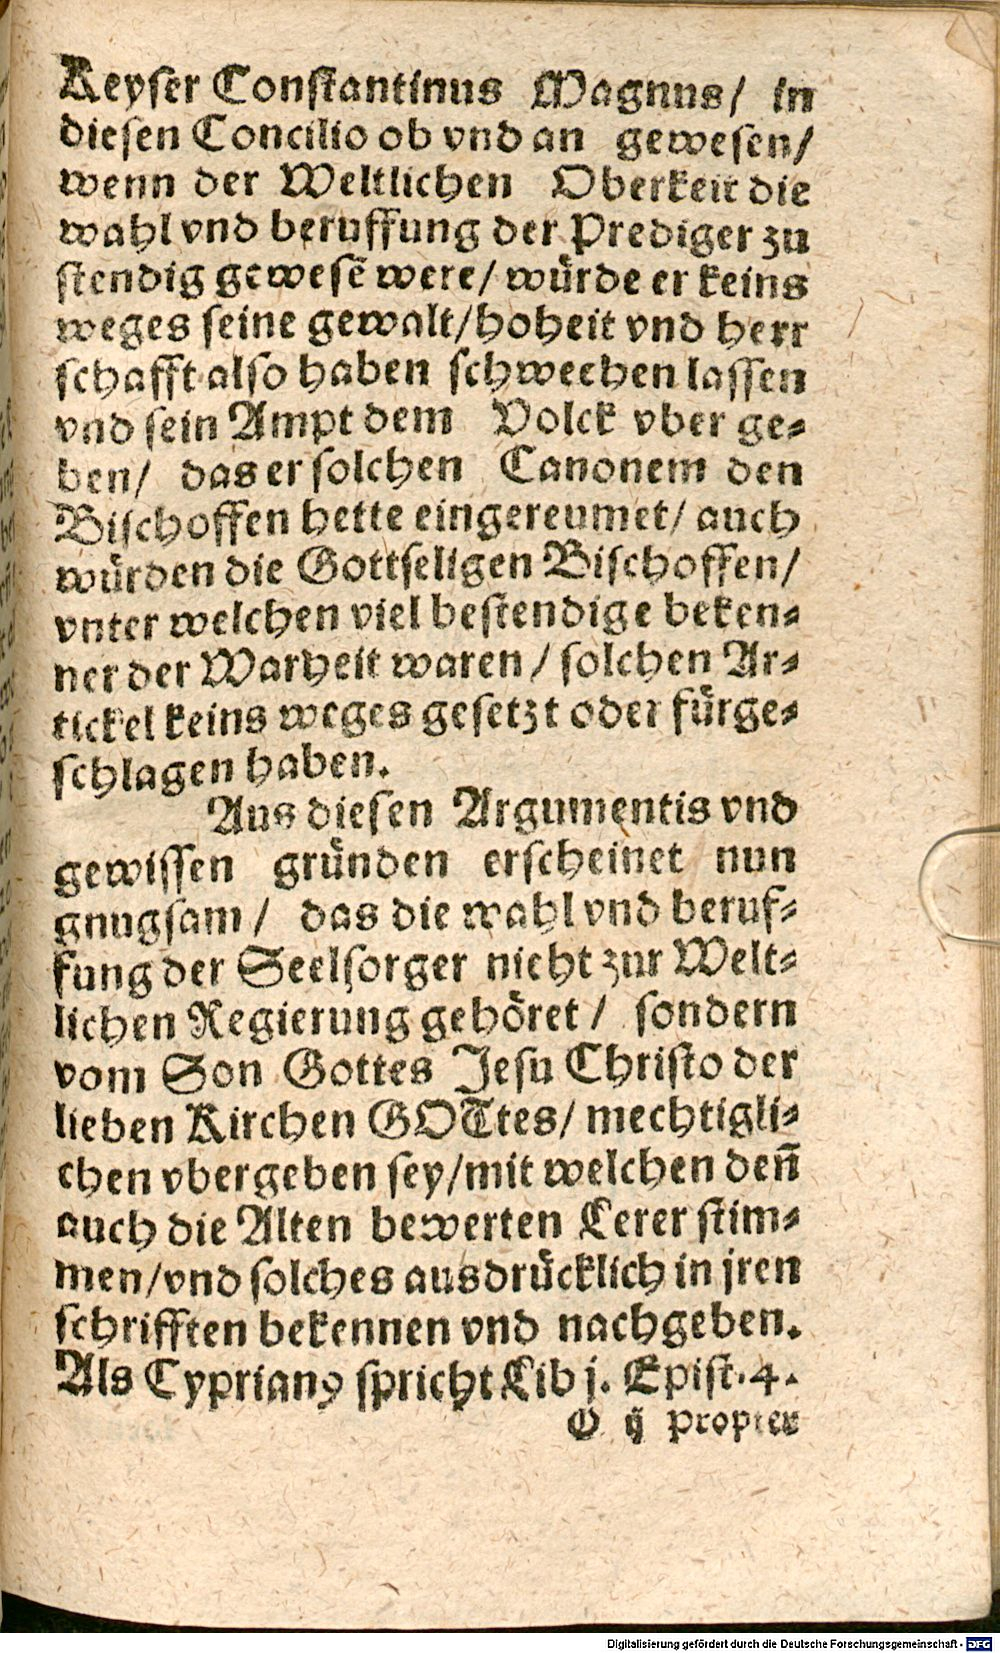 Keyser Constantinus Magnus/ in
diesen Concilio ob vnd an gewesen/
wenn der Weltlichen Oberkeit die
wahl vnd beruffung der Prediger zu
stendig gewesē were/ würde er keins
weges seine gewalt/hoheit vnd herr
schafft also haben schwechen lassen
vnd sein Ampt dem Volck vber ge-
ben/ das er solchen Canonem den
Bischoffen hette eingereumet/ auch
würden die Gottseligen Bischoffen/
vnter welchen viel bestendige beken-
ner der Warheit waren / solchen Ar-
tickel keins weges gesetzt oder fürge-
schlagen haben.
Aus diesen Argumentis vnd
gewissen gründen erscheinet nun
gnugsam / das die wahl vnd beruf-
fung der Seelsorger nicht zur Welt-
lichen Regierung gehöret / sondern
vom Son Gottes Jesu Christo der
lieben Kirchen GOTtes/ mechtigli-
chen vbergeben sey/mit welchen den̄
auch die Alten bewerten Lerer stim-
men/vnd solches ausdrücklich in jren
schrifften bekennen vnd nachgeben.
Als Cyprianꝰ spricht Lib j. Epist.4.
O ij propter
Digitalisierung gefördert durch die Deutsche Forschungsgemeinschaft - DFG